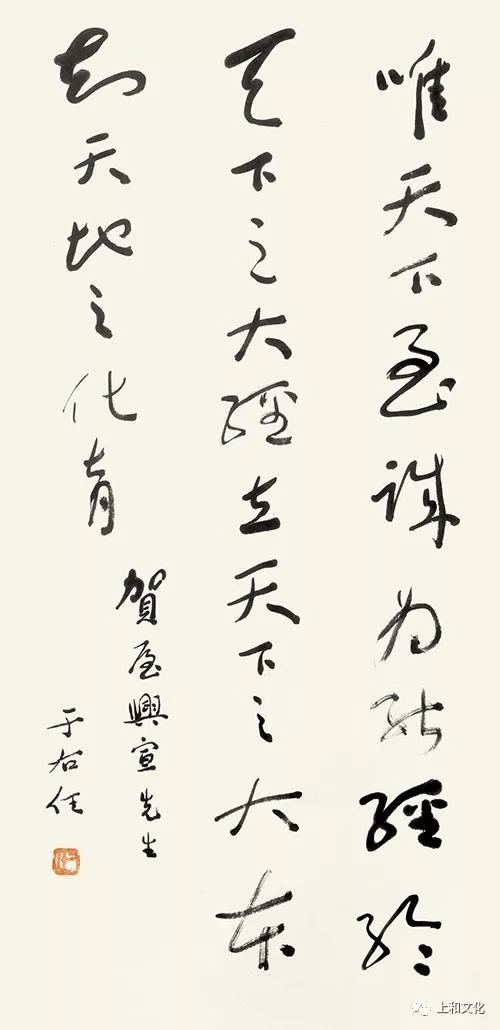 唯天下至誠為能經綸
天下之大經立天下之大本
知天地之化育
賀屋興宣先生
于右任
上和文化